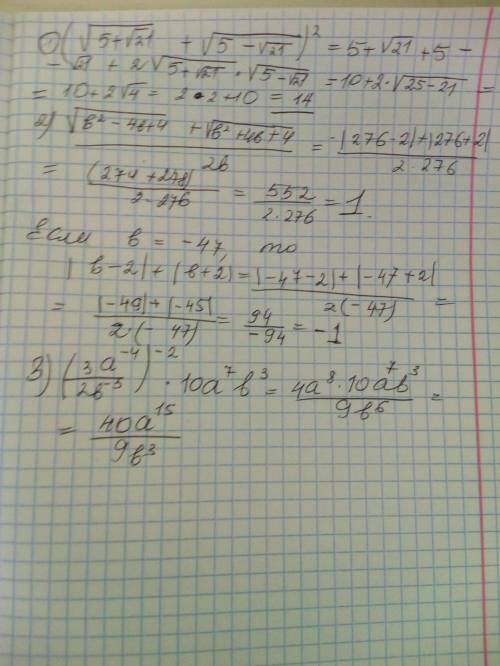 1) (√(5+√21) + √(5-√21))² = 5+√21 +5 -
- √21 + 2√(5+√21) · √(5-√21) = 10+2·√(25-21) =
= 10+2√4 = 2·2+10 = 14
2) (√(b²-4b+4) + √(b²+4b+4))/2b = (|276-2|+|276+2|)/(2·276)
= (274+278)/(2·276) = 552/(2·276) = 1.
Если b = -47, то
|b-2|+|b+2| = (|-47-2|+|-47+2|)/(2(-47)) =
= (|-49|+|-45|)/(2·(-47)) = 94/-94 = -1
3) (3a⁻⁴/2b⁻³)⁻² · 10a⁷b³ = (4a⁸·10a⁷b³)/9b⁶ =
= 40a¹⁵/9b³